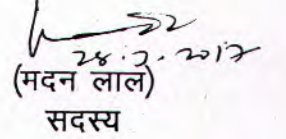 28.2.2017
(मदन लाल)
सदस्य